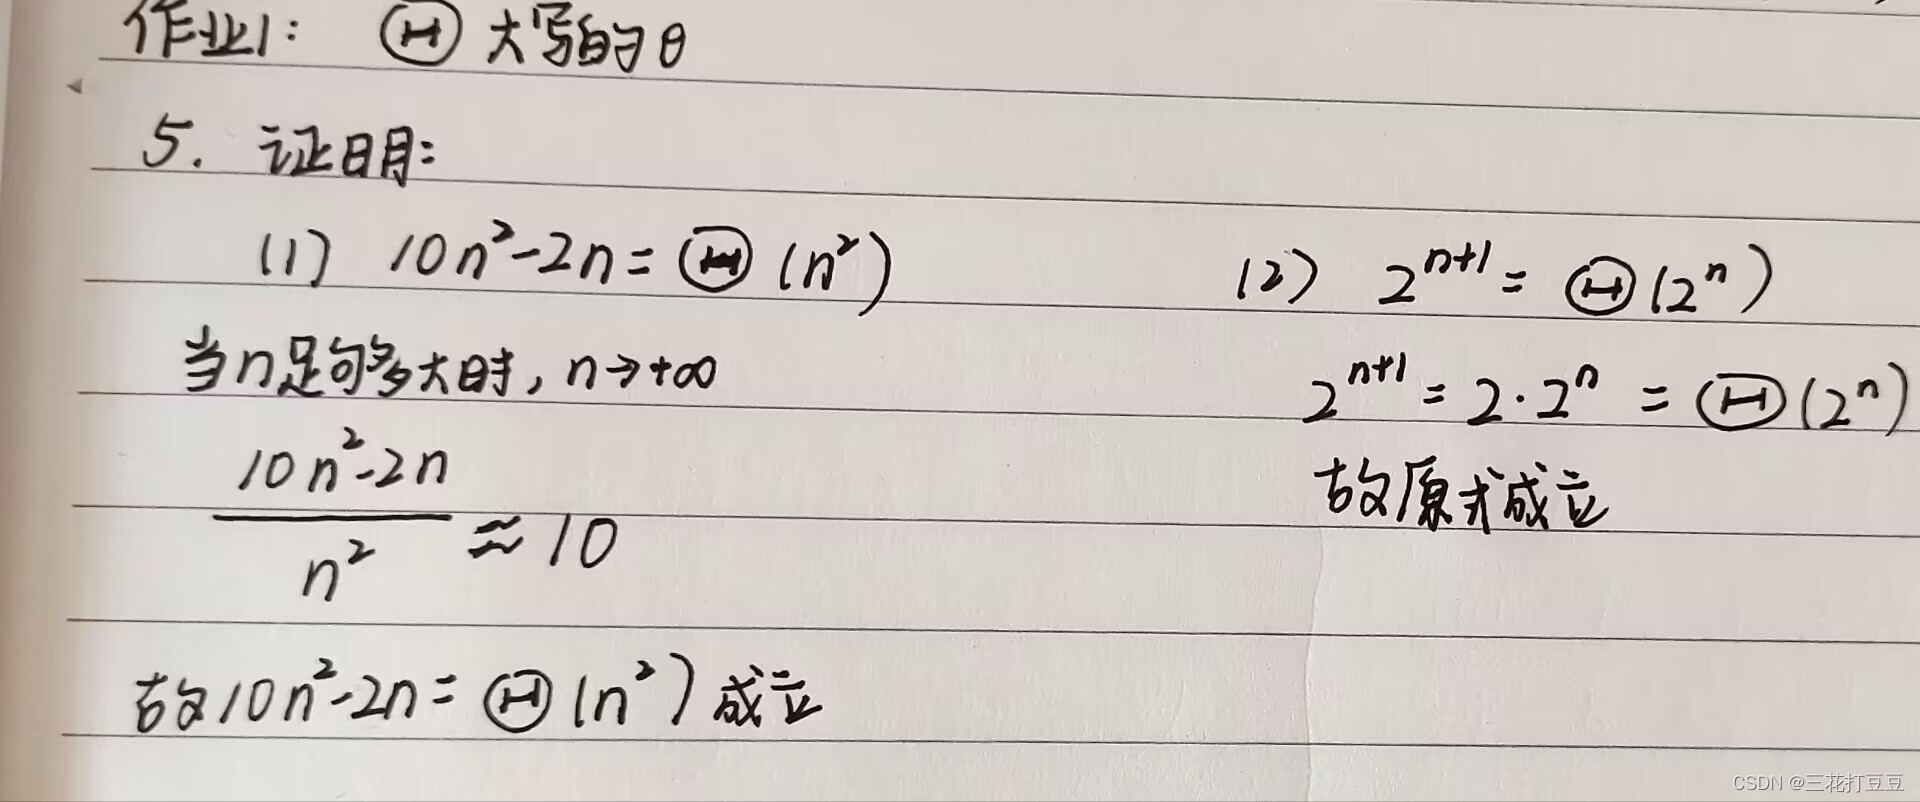 作业1: Θ 大写的θ
5. 证明:
(1) 10n²-2n = Θ(n²)
当n足够多大时, n→+∞
10n²-2n
n²
≈ 10
故10n²-2n = Θ(n²) 成立
(2) 2ⁿ⁺¹ = Θ(2ⁿ)
2ⁿ⁺¹ = 2·2ⁿ = Θ(2ⁿ)
故原式成立
CSDN @三花打豆豆